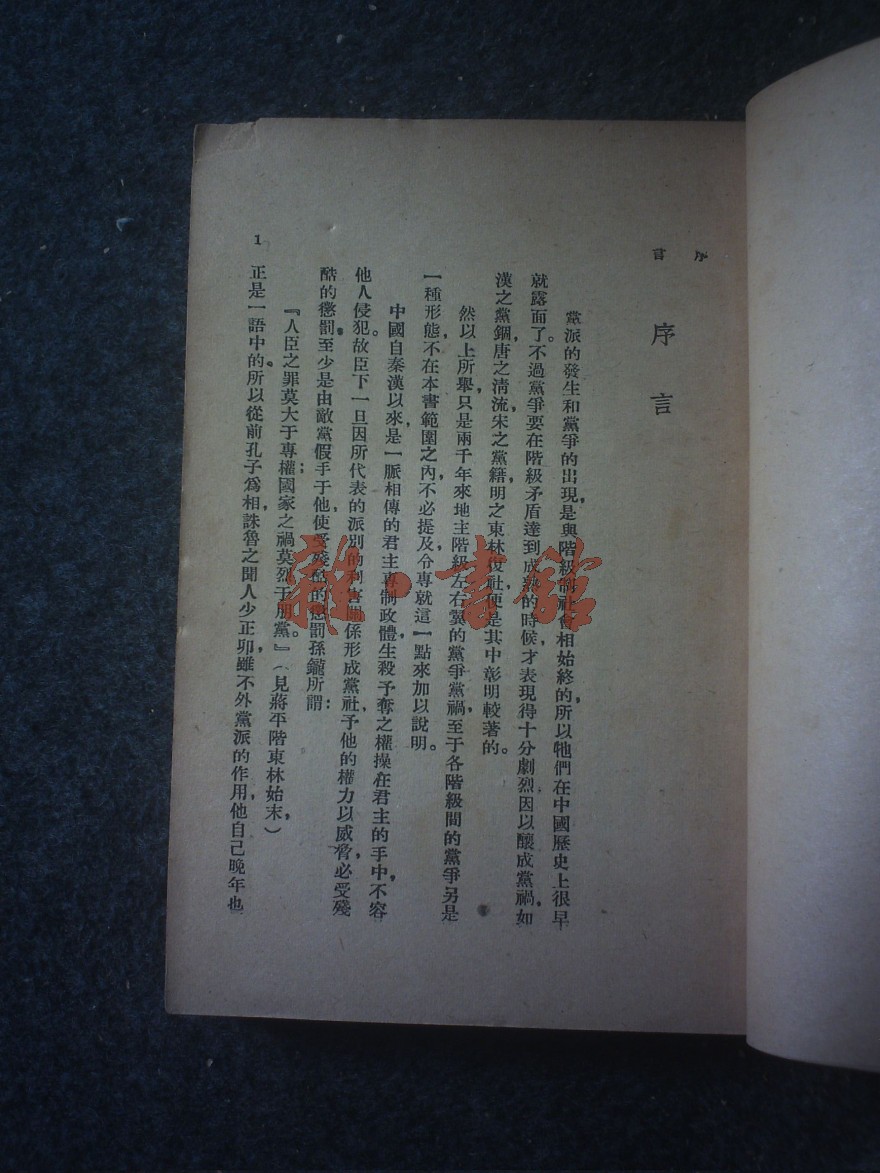 序言
序言
黨派的發生和黨爭的出現，是與階級制社會相始終的，所以牠們在中國歷史上很早
就露面了。不過黨爭要在階級矛盾達到成熟的時候，才表現得十分劇烈，因以釀成黨禍，如
漢之黨錮，唐之清流，宋之黨籍，明之東林復社，便是其中彰明較著的。
然以上所舉，只是兩千年來地主階級左右翼的黨爭黨禍，至于各階級間的黨爭，另是
一種形態，不在本書範圍之內，不必提及，今專就這一點來加以說明。
中國自秦漢以來，是一脈相傳的君主專制政體，生殺予奪之權，操在君主的手中，不容
他人侵犯。故臣下一旦因所代表的派別的利害關係，形成黨社，予他的權力以威脅，必受殘
酷的懲罰，至少是由敵黨假手于他，使受殘酷的懲罰，孫鑨所謂：
『人臣之罪，莫大于專權；國家之禍，莫烈于朋黨。』（見蔣平階東林始末，）
正是一語中的。所以從前孔子爲相，誅魯之聞人少正卯，雖不外黨派的作用，他自己晚年也
1
雜·書館